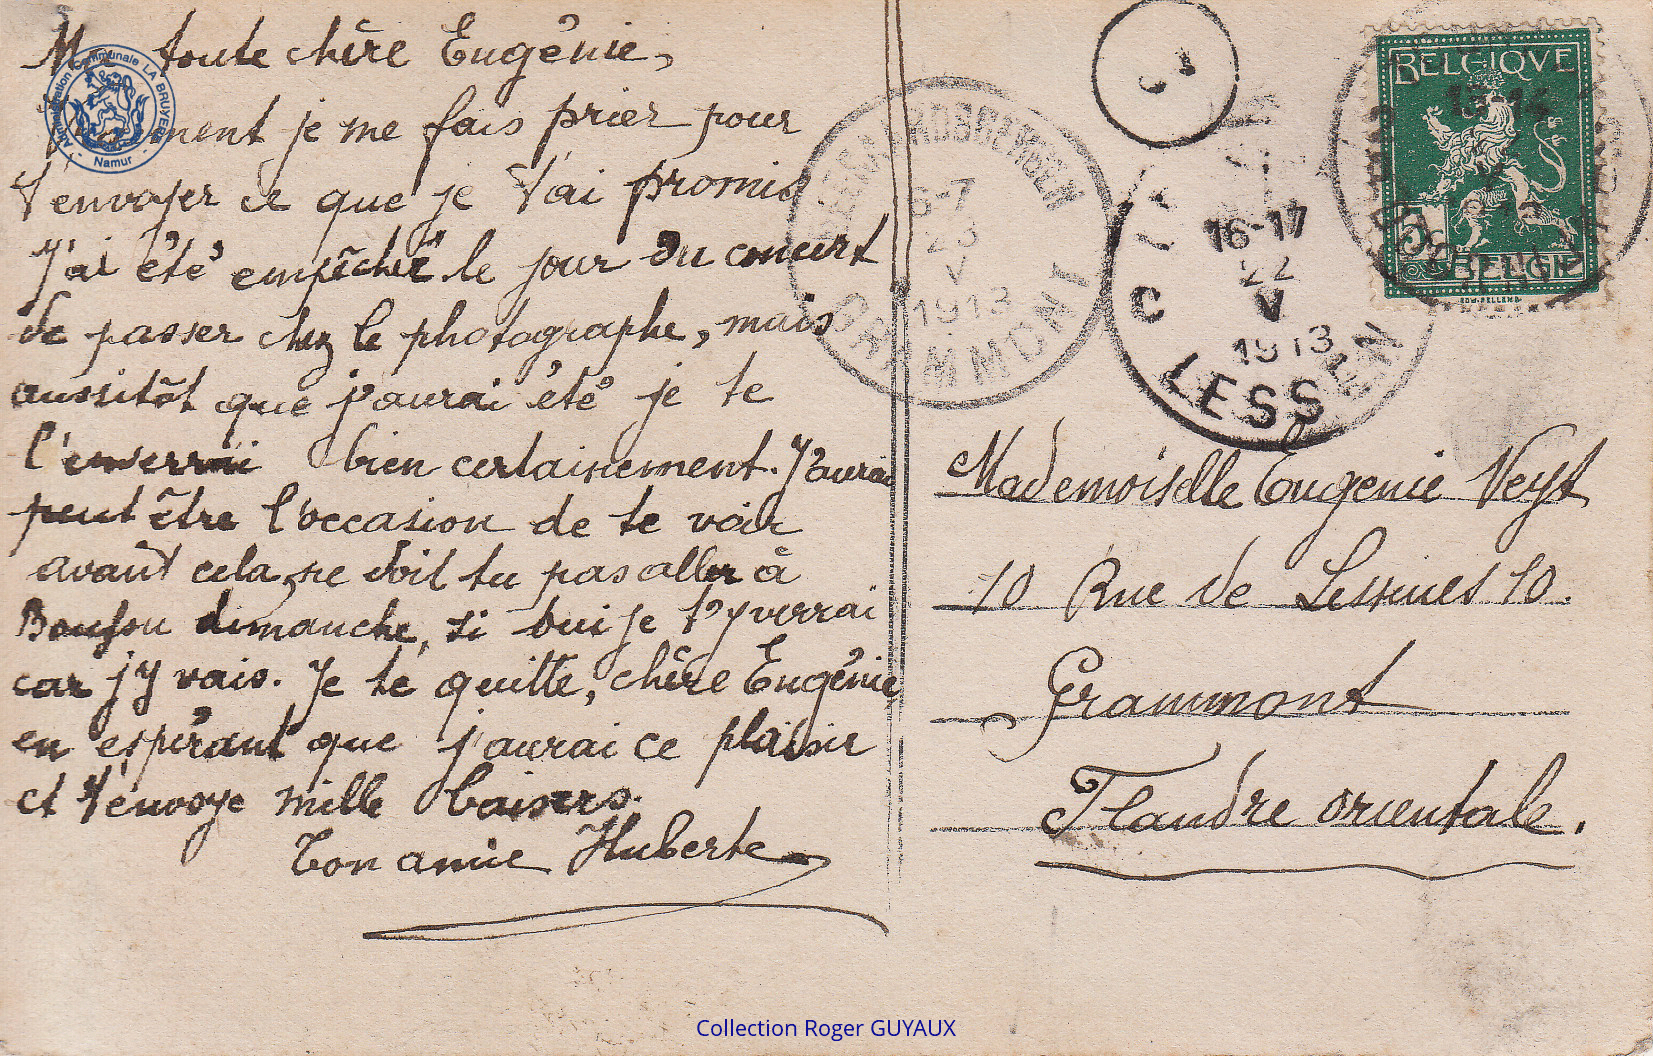 Ma toute chère Eugénie,
Vraiment je me fais prier pour
t'envoyer ce que je t'ai promis
J'ai été empêchée le jour du concert
de passer chez le photographe, mais
aussitôt que j'aurai été je te
l'enverrai bien certainement. J'aurai
peut être l'occasion de te voir
avant cela, ne doit tu pas aller à
dimanche, si oui je t'y verrai
car j'y vais. Je te quitte, chère Eugénie
en espérant que j'aurai ce plaisir
et t'envoye mille baisers.
Ton amie Huberte
Administration Communale LA BRUYERE
- Namur -
GEERAARDSBERGEN
6-7
23
V
1913
GRAMMONT
16-17
22
V
1913
C
LESSEN
BELGIQUE
5
BELGIË
Mademoiselle Eugenie Veyt
10 Rue de Lessines 10.
Grammont
Flandre orientale.
Collection Roger GUYAUX